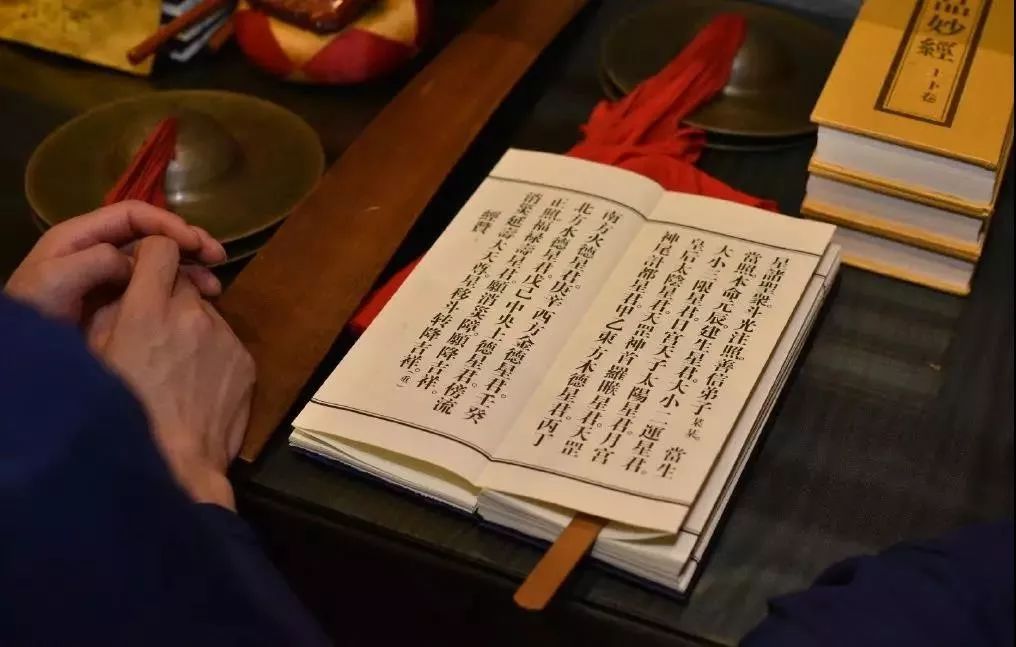 星諸聖衆。斗光注照。善信弟子某某。當生
當照。本命元辰。建生星君。大小二運星君。
大小三限星君。日宮天子太陽星君。月宮
皇后太陰星君。天罡神首羅睺星君。天罡
神尾計都星君。甲乙東方木德星君。丙丁
南方火德星君。庚辛西方金德星君。壬癸
北方水德星君。戊己中央土德星君。傍流
正照。福祿壽星君。願消災障。願降吉祥。
消災延壽大天尊。星移斗转降吉祥。
經贊
品妙經
上下卷